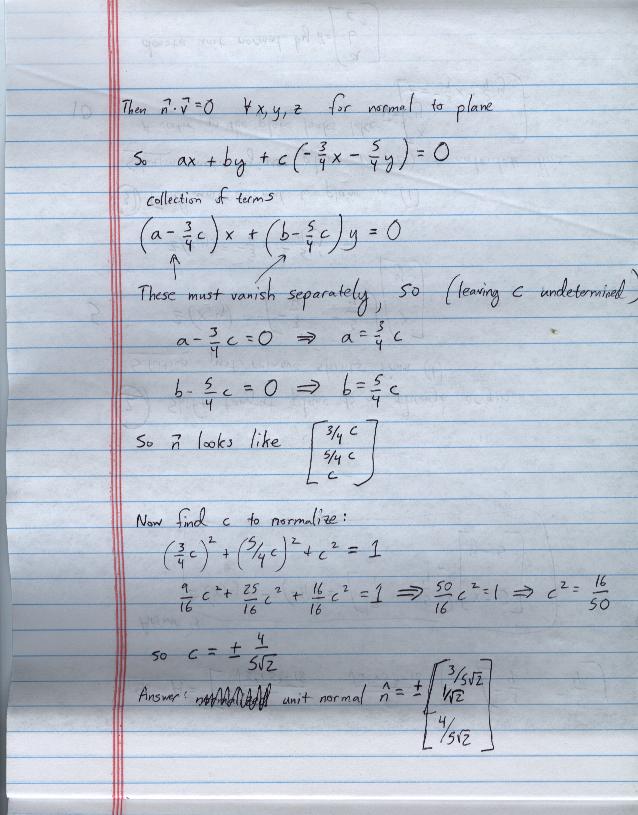 Then n⃗·v⃗=0 ∀x,y,z for normal to plane
So ax + by + c(-3/4x - 5/4y) = 0
collection of terms
(a - 3/4c)x + (b - 5/4c)y = 0
These must vanish separately, so (leaving c undetermined)
a - 3/4c = 0 ⇒ a = 3/4 c
b - 5/4c = 0 ⇒ b = 5/4 c
So n⃗ looks like [3/4 c
5/4 c
c]
Now find c to normalize:
(3/4c)² + (5/4c)² + c² = 1
9/16c² + 25/16c² + 16/16c² = 1 ⇒ 50/16c² = 1 ⇒ c² = 16/50
so c = ± 4/5√2
Answer: unit normal n̂ = ± [3/5√2
1/√2
4/5√2]